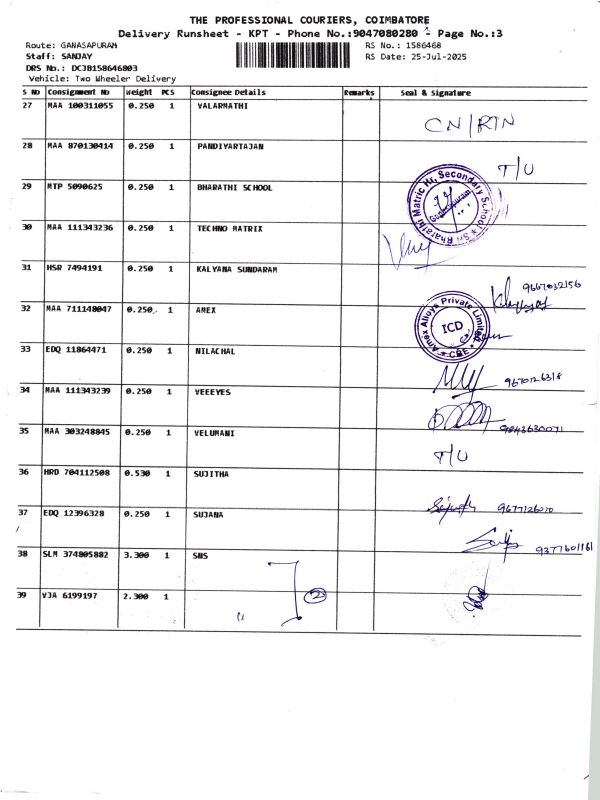 THE PROFESSIONAL COURIERS, COIMBATORE
Delivery Runsheet - KPT - Phone No.:9047080280 - Page No.:3
Route: GANASAPURAM
RS No.: 1586468
Staff: SANJAY
RS Date: 25-Jul-2025
DRS No.: DCJB158646803
Vehicle: Two Wheeler Delivery
S No Consignment No Weight PCS Consignee Details Remarks Seal & Signature
27 MAA 100311055 0.250 1 VALARMATHI
CN/RTN
28 MAA 870130414 0.250 1 PANDIYARTAJAN
T/U
29 MTP 5090625 0.250 1 BHARATHI SCHOOL
Sri Bharathi Matric Hr. Secondary School
Ganapathipuram
30 MAA 111343236 0.250 1 TECHNO MATRIX
31 HSR 7494191 0.250 1 KALYANA SUNDARAM
9667032156
32 MAA 711148047 0.250 1 AMEX
Amex Alloys Private Limited
ICD
CBE
33 EDQ 11864471 0.250 1 NILACHAL
9670126318
34 MAA 111343239 0.250 1 VEEEYES
9843630071
35 MAA 303248845 0.250 1 VELUMANI
T/U
36 HRD 704112508 0.530 1 SUJITHA
9677126010
37 EDQ 12396328 0.250 1 SUJANA
9377601161
38 SLM 374805882 3.300 1 SNS
2
39 VJA 6199197 2.300 1 "